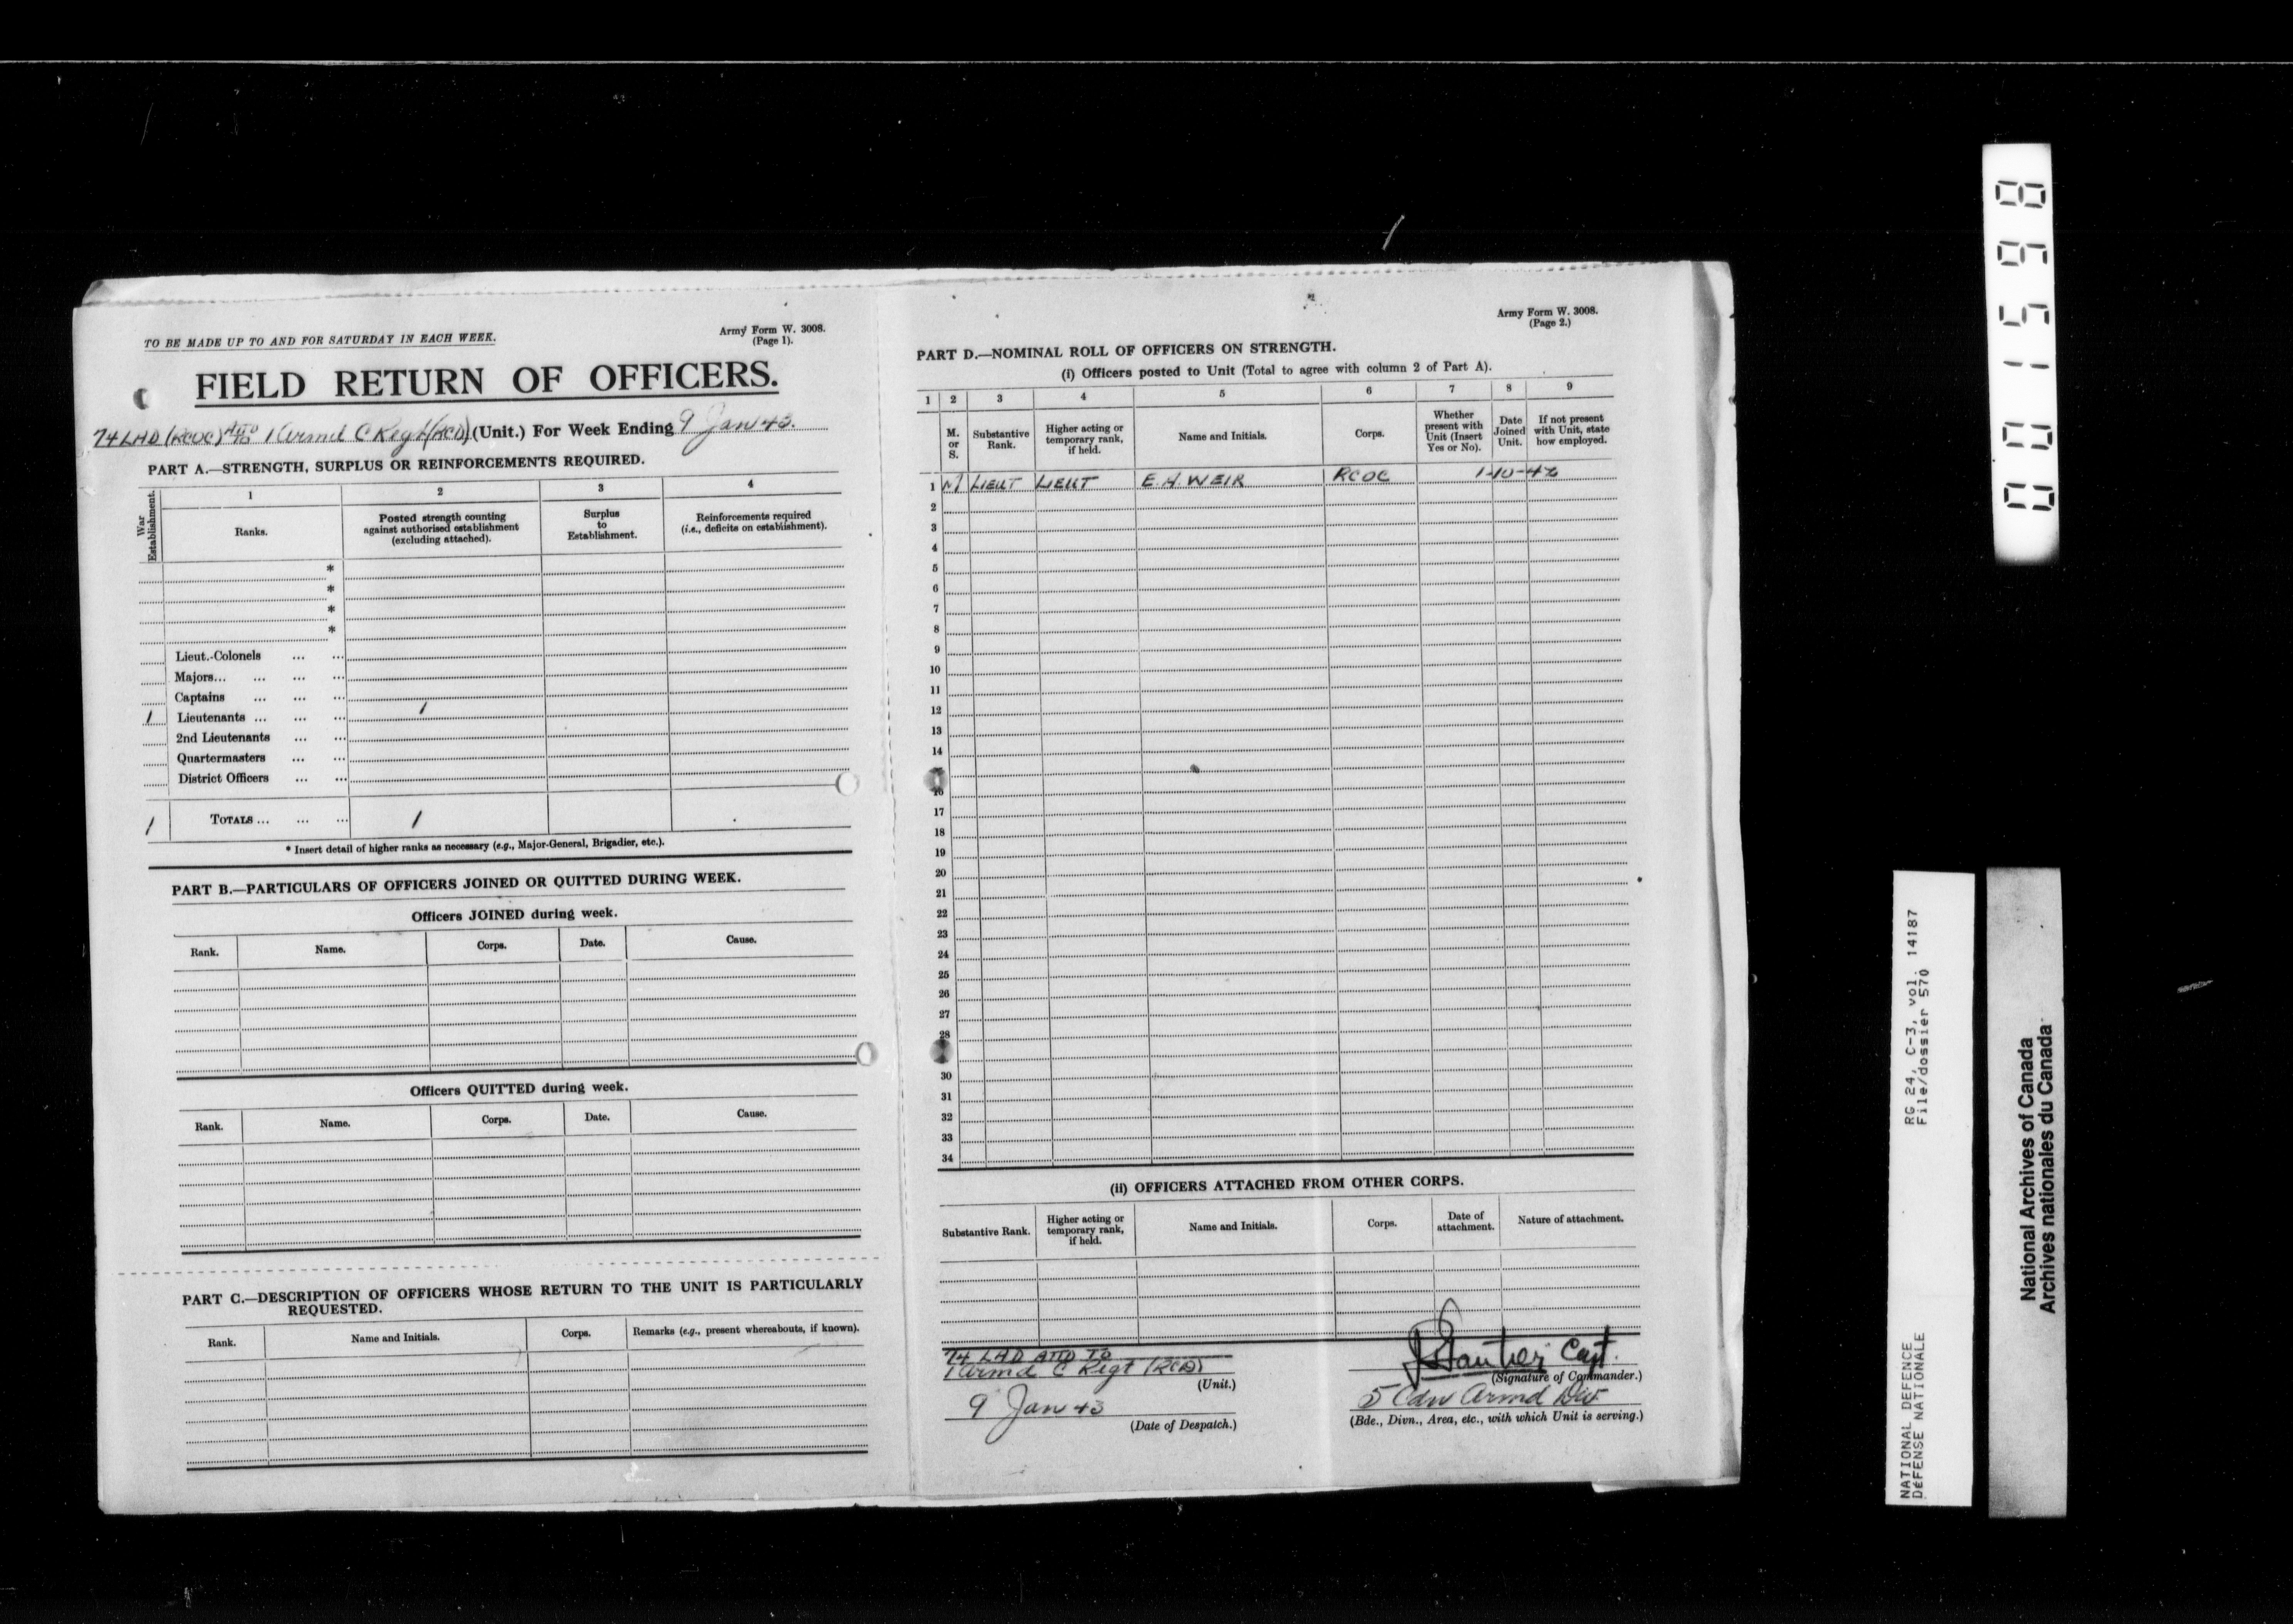 TO BE MADE UP TO AND FOR SATURDAY IN EACH WEEK.
Army Form W. 3008.
(Page 1).
FIELD RETURN OF OFFICERS.
74 LAD (RCOC) ATTD TO 1 Armd C Regt (RCD) (Unit.) For Week Ending 9 Jan 43.
PART A.—STRENGTH, SURPLUS OR REINFORCEMENTS REQUIRED.
War Establishment.
1 2 3 4
Ranks.
Posted strength counting against authorised establishment (excluding attached).
Surplus to Establishment.
Reinforcements required (i.e., deficits on establishment).
*
*
*
*
Lieut.-Colonels ... ...
Majors... ... ... ...
Captains ... ... ...
1 Lieutenants ... ... ... 1
2nd Lieutenants ... ...
Quartermasters ... ...
District Officers ... ...
1 TOTALS ... ... ... 1
* Insert detail of higher ranks as necessary (e.g., Major-General, Brigadier, etc.).
PART B.—PARTICULARS OF OFFICERS JOINED OR QUITTED DURING WEEK.
Officers JOINED during week.
Rank. Name. Corps. Date. Cause.
Officers QUITTED during week.
Rank. Name. Corps. Date. Cause.
PART C.—DESCRIPTION OF OFFICERS WHOSE RETURN TO THE UNIT IS PARTICULARLY
REQUESTED.
Rank. Name and Initials. Corps. Remarks (e.g., present whereabouts, if known).
Army Form W. 3008.
(Page 2.)
PART D.—NOMINAL ROLL OF OFFICERS ON STRENGTH.
(i) Officers posted to Unit (Total to agree with column 2 of Part A).
1 2 3 4 5 6 7 8 9
M. or S.
Substantive Rank.
Higher acting or temporary rank, if held.
Name and Initials.
Corps.
Whether present with Unit (Insert Yes or No).
Date Joined Unit.
If not present with Unit, state how employed.
1 M LIEUT LIEUT E.H. WEIR RCOC 1-10-42
2
3
4
5
6
7
8
9
10
11
12
13
14
16
17
18
19
20
21
22
23
24
25
26
27
28
30
31
32
33
34
(ii) OFFICERS ATTACHED FROM OTHER CORPS.
Substantive Rank.
Higher acting or temporary rank, if held.
Name and Initials.
Corps.
Date of attachment.
Nature of attachment.
74 LAD ATTD TO
1 Armd C Regt (RCD)
(Unit.)
9 Jan 43
(Date of Despatch.)
Capt.
(Signature of Commander.)
5 Cdn Armd Div
(Bde., Divn., Area, etc., with which Unit is serving.)
001598
RG 24, C-3, vol. 14187
File/dossier 570
NATIONAL DEFENCE
DÉFENSE NATIONALE
National Archives of Canada
Archives nationales du Canada